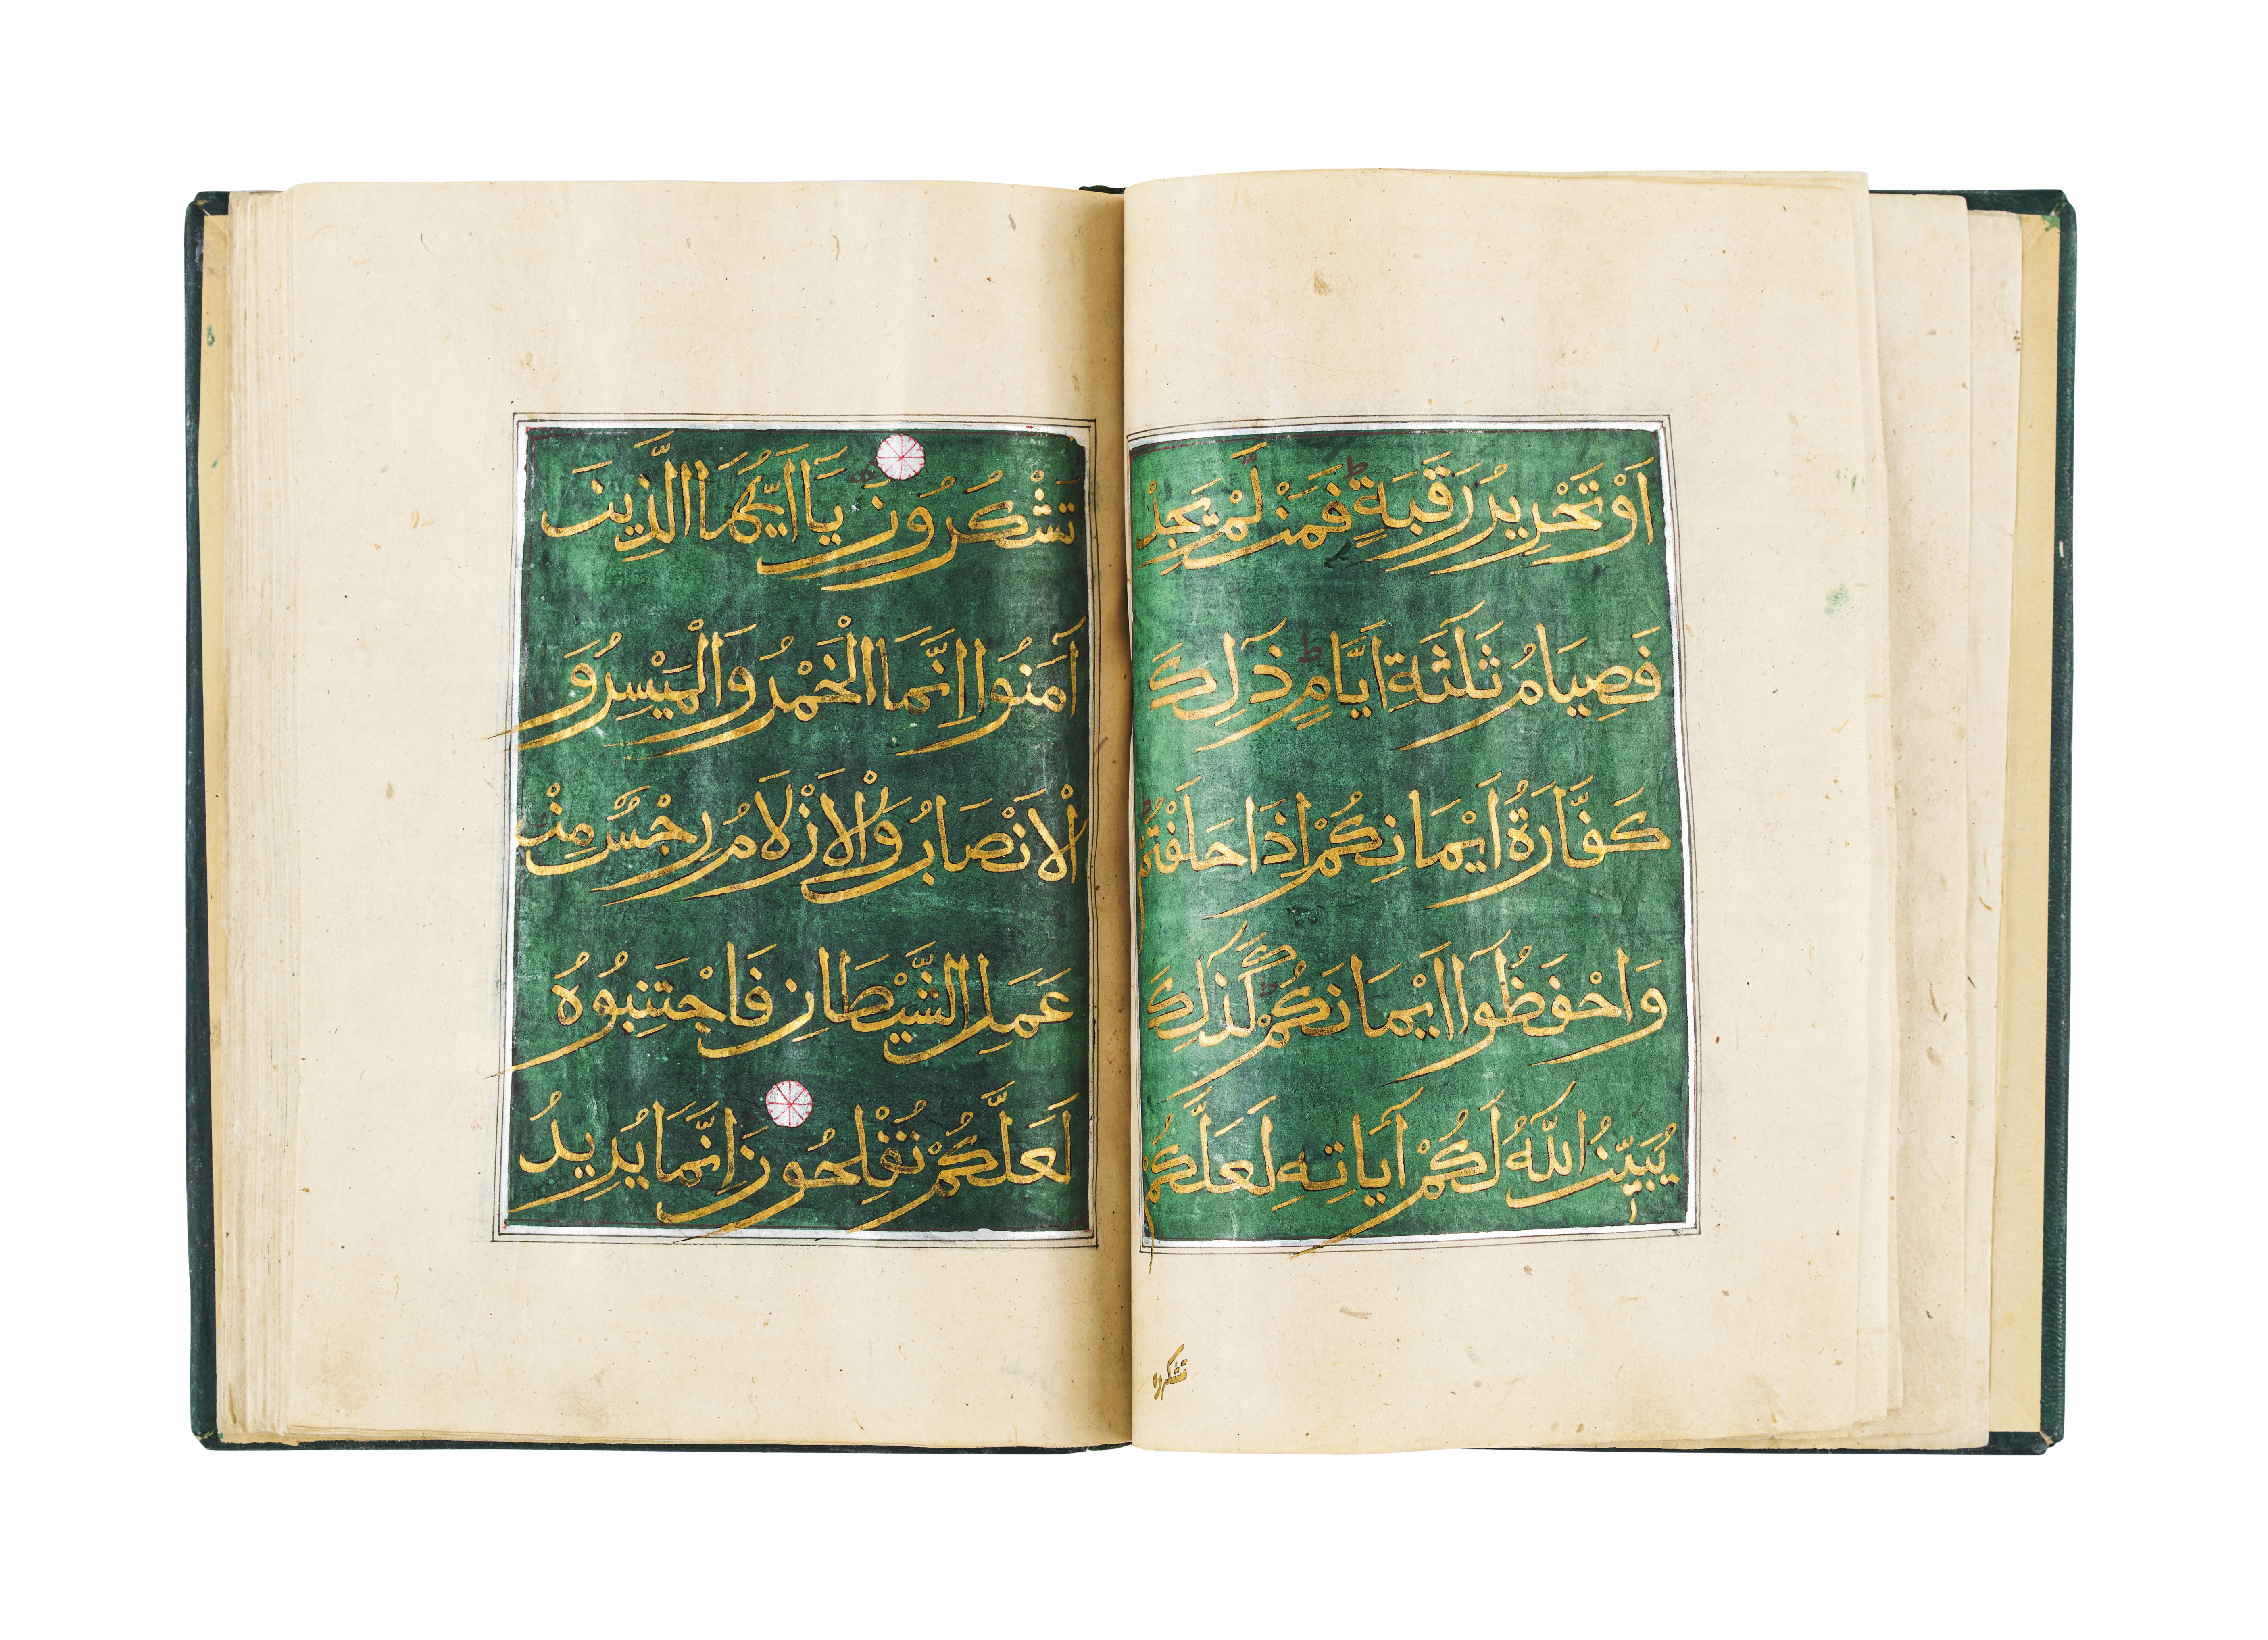 اَوْ تَحْرِيرُ رَقَبَةٍ ط فَمَنْ لَمْ يَجِدْ
فَصِيَامُ ثَلٰثَةِ اَيَّامٍ ط ذٰلِكَ
كَفَّارَةُ اَيْمَانِكُمْ اِذَا حَلَفْتُمْ ط
وَاحْفَظُوٓا اَيْمَانَكُمْ ط كَذٰلِكَ
يُبَيِّنُ اللّٰهُ لَكُمْ آيَاتِهِ لَعَلَّكُمْ
تشكرون
تَشْكُرُونَ يَٓا اَيُّهَا الَّذِينَ
آمَنُوا اِنَّمَا الْخَمْرُ وَالْمَيْسِرُ وَ
الْاَنْصَابُ وَالْاَزْلَامُ رِجْسٌ مِنْ
عَمَلِ الشَّيْطَانِ فَاجْتَنِبُوهُ
لَعَلَّكُمْ تُفْلِحُونَ اِنَّمَا يُرِيدُ